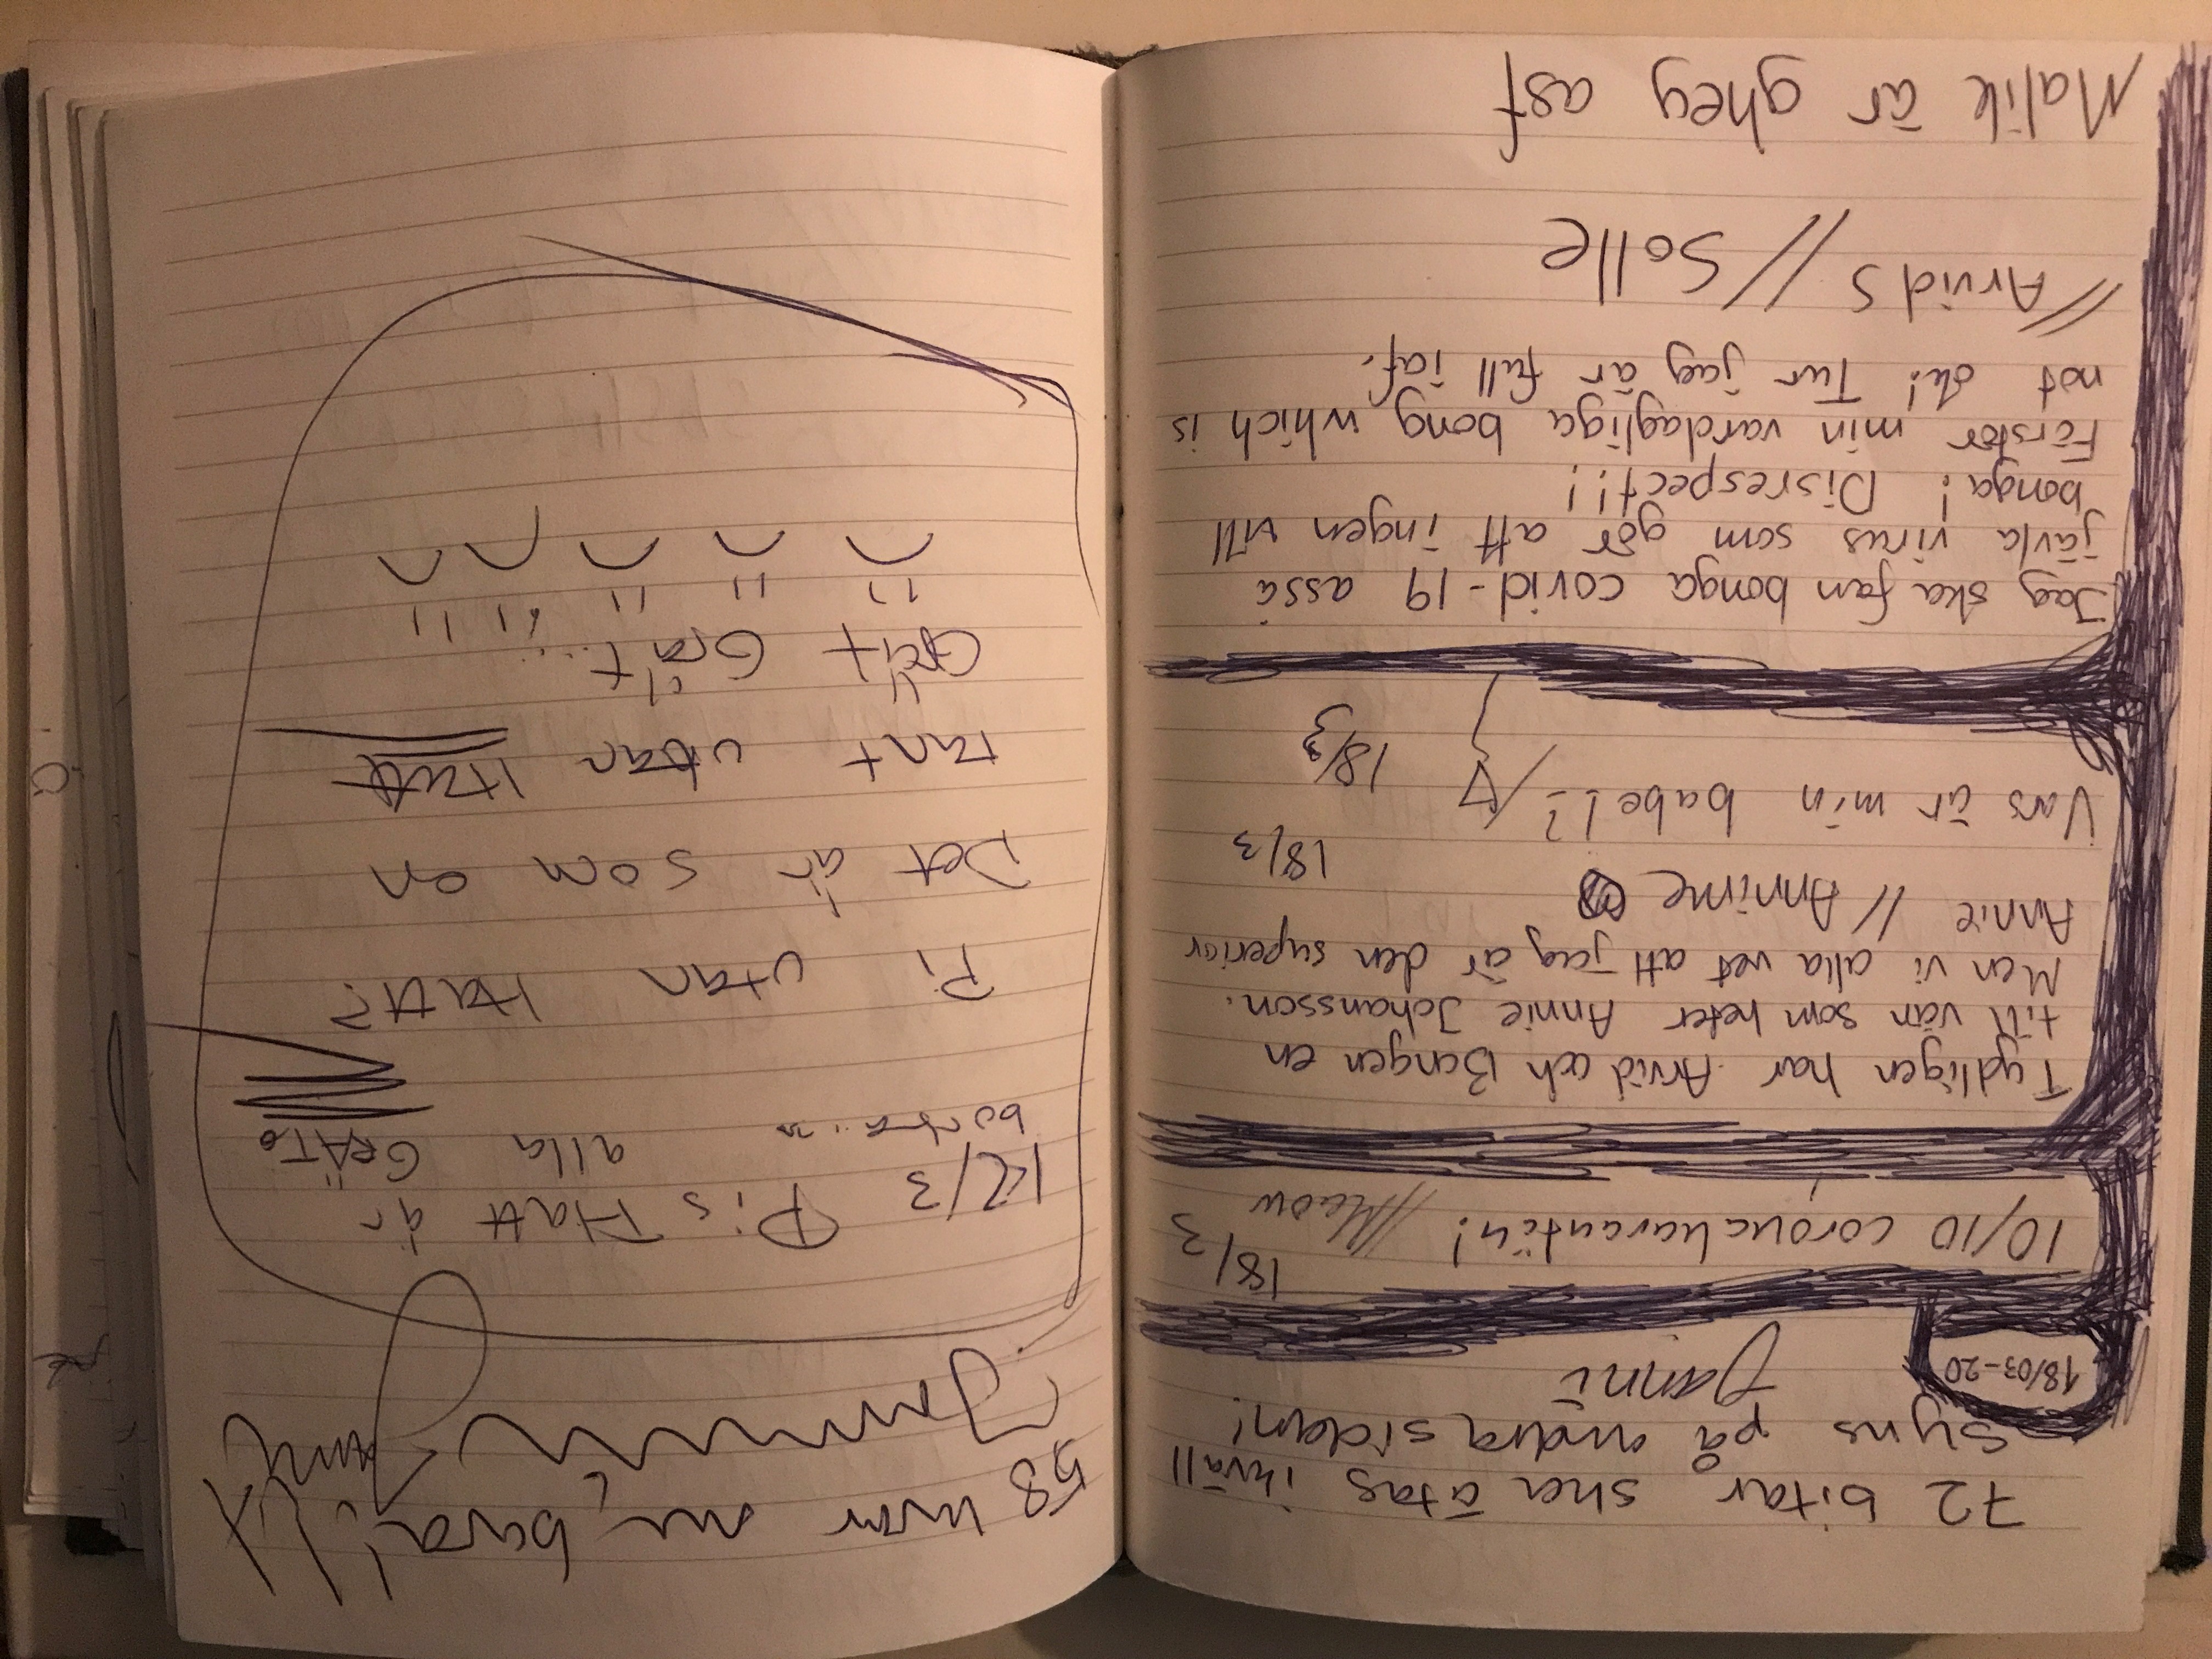 72 bitar ska ätas ikväll
Syns på andra sidan!
18/03-20
Janni
10/10 coronakarantän! //Meow
18/3
Tydligen har Arvid och Bangen en
till vän som heter Annie Johansson.
Men vi alla vet att jag är den superior
Annie // Annime
18/3
Vars är min babe!?
18/3
Jag ska fan bonga covid-19 asså
jävla virus som gör att ingen vill
bonga! Disrespect!!
Förstör min vardagliga bong which is
not ok! Tur jag är full iaf.
//Arvid S //Solle
Malik är ghey asf
58 kvar nu, bara!
12/3 Pis Hatt är
borta... alla GRÄT
Pi utan Hatt?
Det är som en
tant utan
Gråt Gråt...